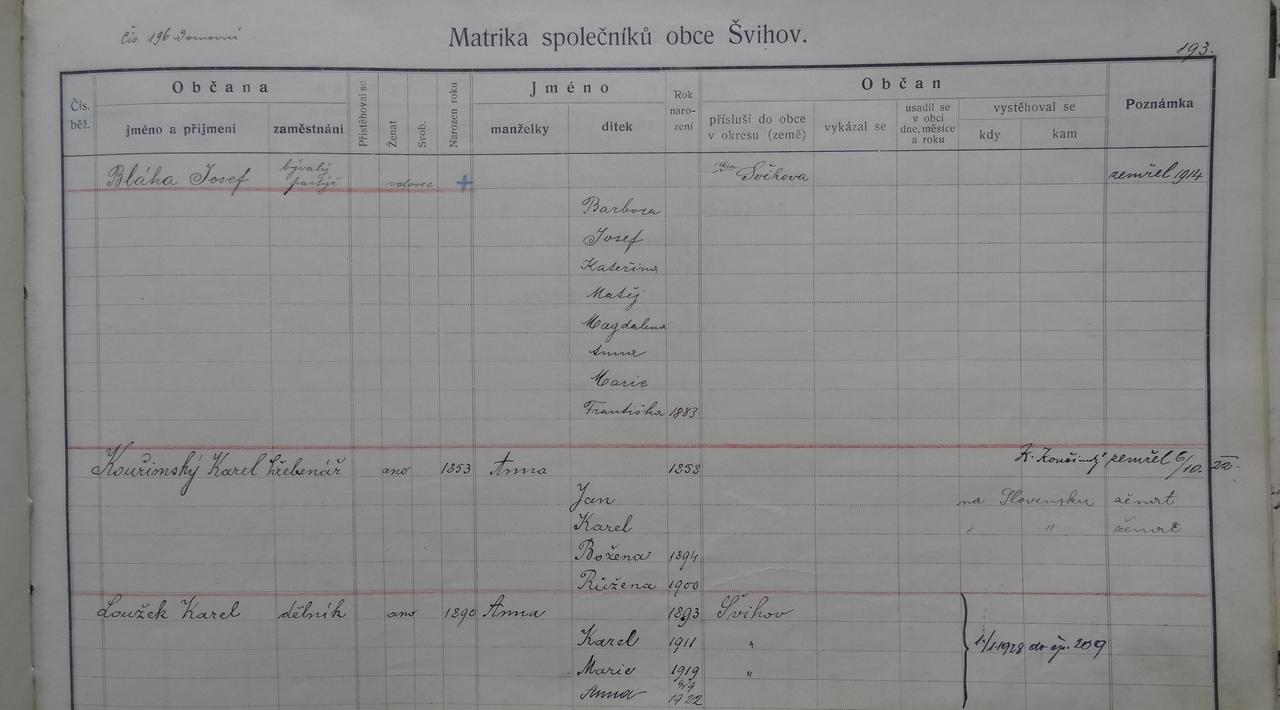 čís 196 domovní
Matrika společníků obce Švihov.
193.
Čís. běž.
Občana
jméno a přijmení
zaměstnání
Přistěhoval se
Ženat
Svob.
Narozen roku
Jméno
manželky
dítek
Rok naro- zení
Občan
přísluší do obce v okresu (země)
vykázal se
usadil se v obci dne, měsíce a roku
vystěhoval se
kdy
kam
Poznámka
Bláha Josef bývalý pastýř vdovec + Do Švihova zemřel 1914
Barbora
Josef
Kateřina
Matěj
Magdalena
Anna
Marie
Františka 1883
Kouřimský Karel hřebenář ano 1853 Anna 1858 K. Kouřimský zemřel 6/10. 22.
Jan na Slovensku ženat
Karel " " ženat
Božena 1894
Růžena 1900
Loužek Karel dělník ano 1890 Anna 1893 Švihov
Karel 1911 " 1/1 1928 do čp. 209
Marie 1919 "
Anna 1922